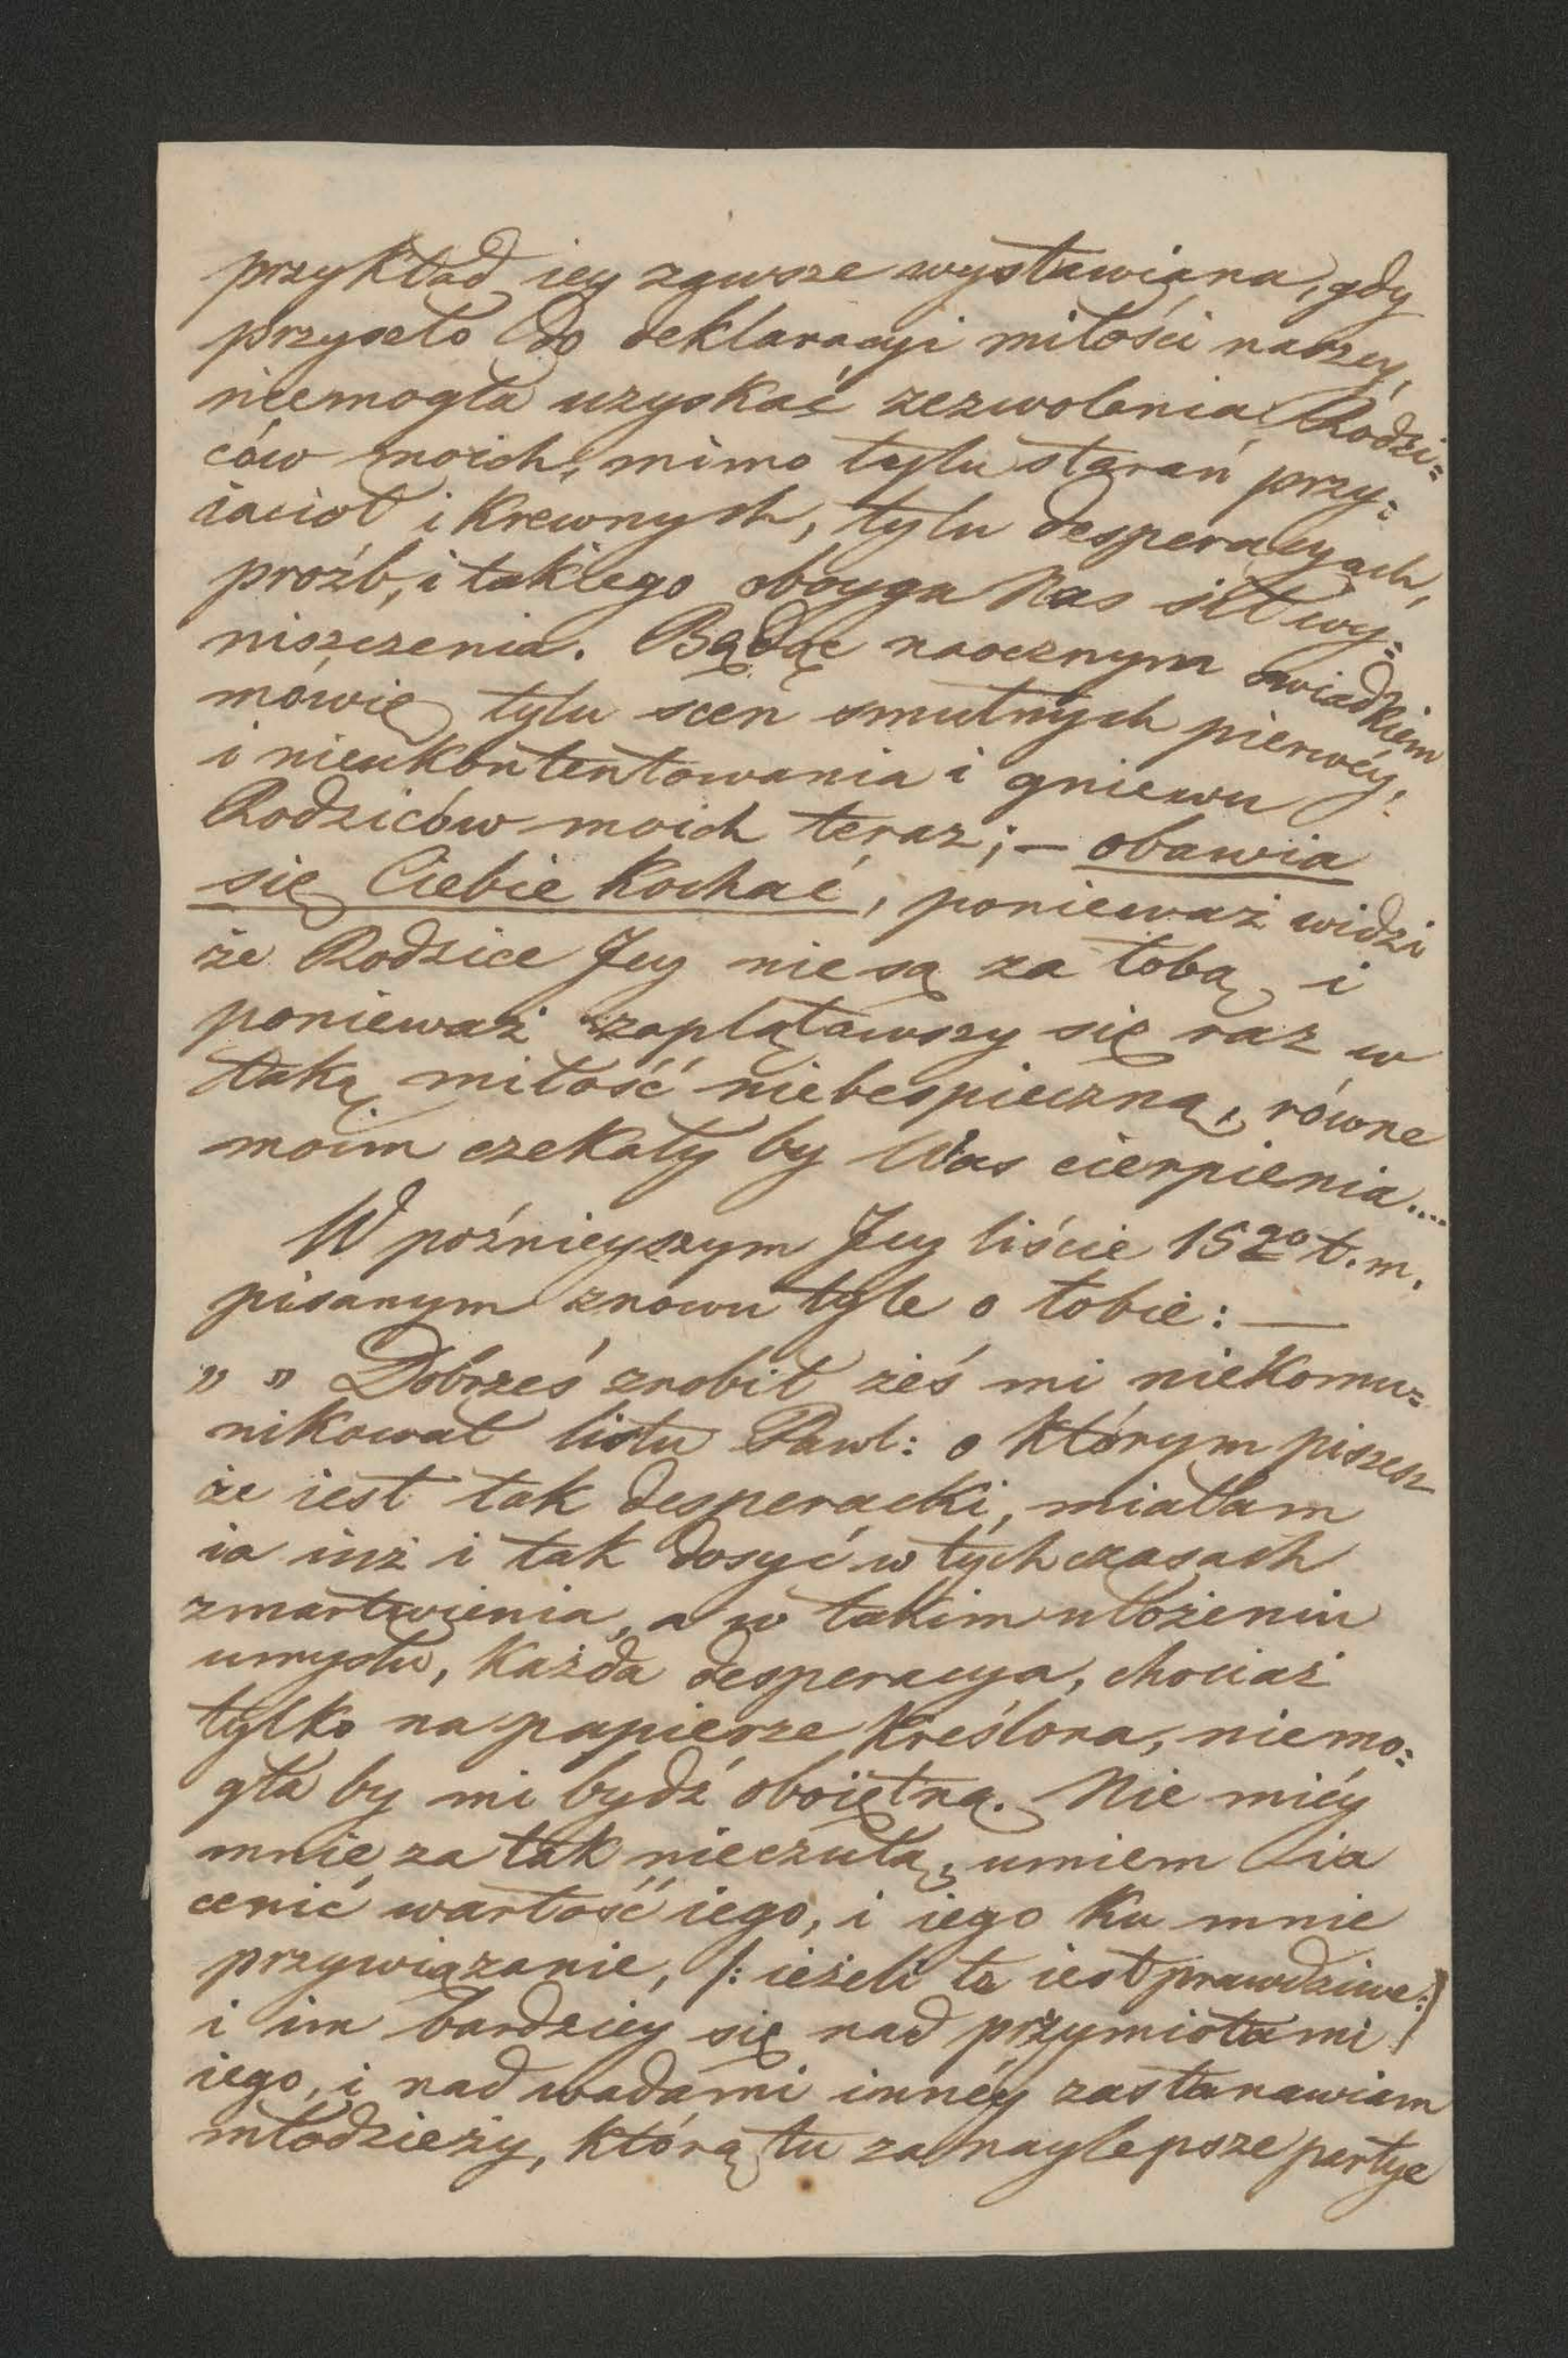 przykład iey zawsze wystawiana, gdy
przyszło do deklaracyi miłości naszey,
niemogła uzyskać zezwolenia Rodzi=
ców moich, mimo tylu starań przy=
iaciół i krewnych, tylu desperacyach,
proźb, i takiego oboyga Nas sił wy=
niszczenia. Będąc naocznym świadkiem
mówię tylu scen smutnych pierwéy,
i nieukontentowania i gniewu
Rodziców moich teraz; — obawia
się Ciebie kochać, ponieważ widzi
że Rodzice Jey nie są za tobą i
ponieważ zaplątawszy się raz w
taką miłość niebespieczną, równe
moim czekały by Was cierpienia....
W poźnieyszym Jey liście 15go t. m.
pisanym znowu tyle o tobie: —
„ „ Dobrześ zrobił żeś mi niekomu=
nikował listu Pawl: o którym piszesz
że iest tak desperacki, miałam
ia iuż i tak dosyć w tych czasach
zmartwienia, a w takim ułożeniu
umysłu, każda desperacya, chociaż
tylko na papierze kreślona, niemo=
gła by mi bydź oboiętną. Nie miéy
mnie za tak nieczułą, umiem ia
cenić wartość iego, i iego ku mnie
przywiązanie, /: ieżeli te iest prawdziwe :/
i im bardziey się nad przymiotami
iego, i nad wadami innéy zastanawiam
młodzieży, którą tu za naylepsze partye